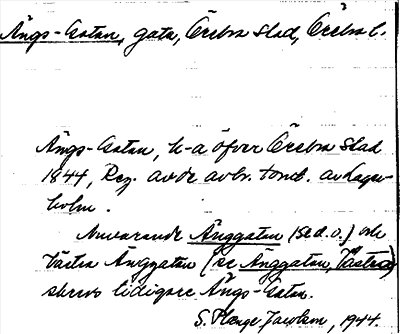 Ängs-Gatan, gata, Örebro stad, Örebro l.
Ängs-Gatan, k-a öfver Örebro Stad
1844, Rez. av de avbr. tomt. av Lager-
holm.
Nuvarande Änggatan (se d.o.) och
Västra Änggatan (se Änggatan, Västra)
skrevs tidigare Ängs-Gatan.
S. Jacobson, 1944.